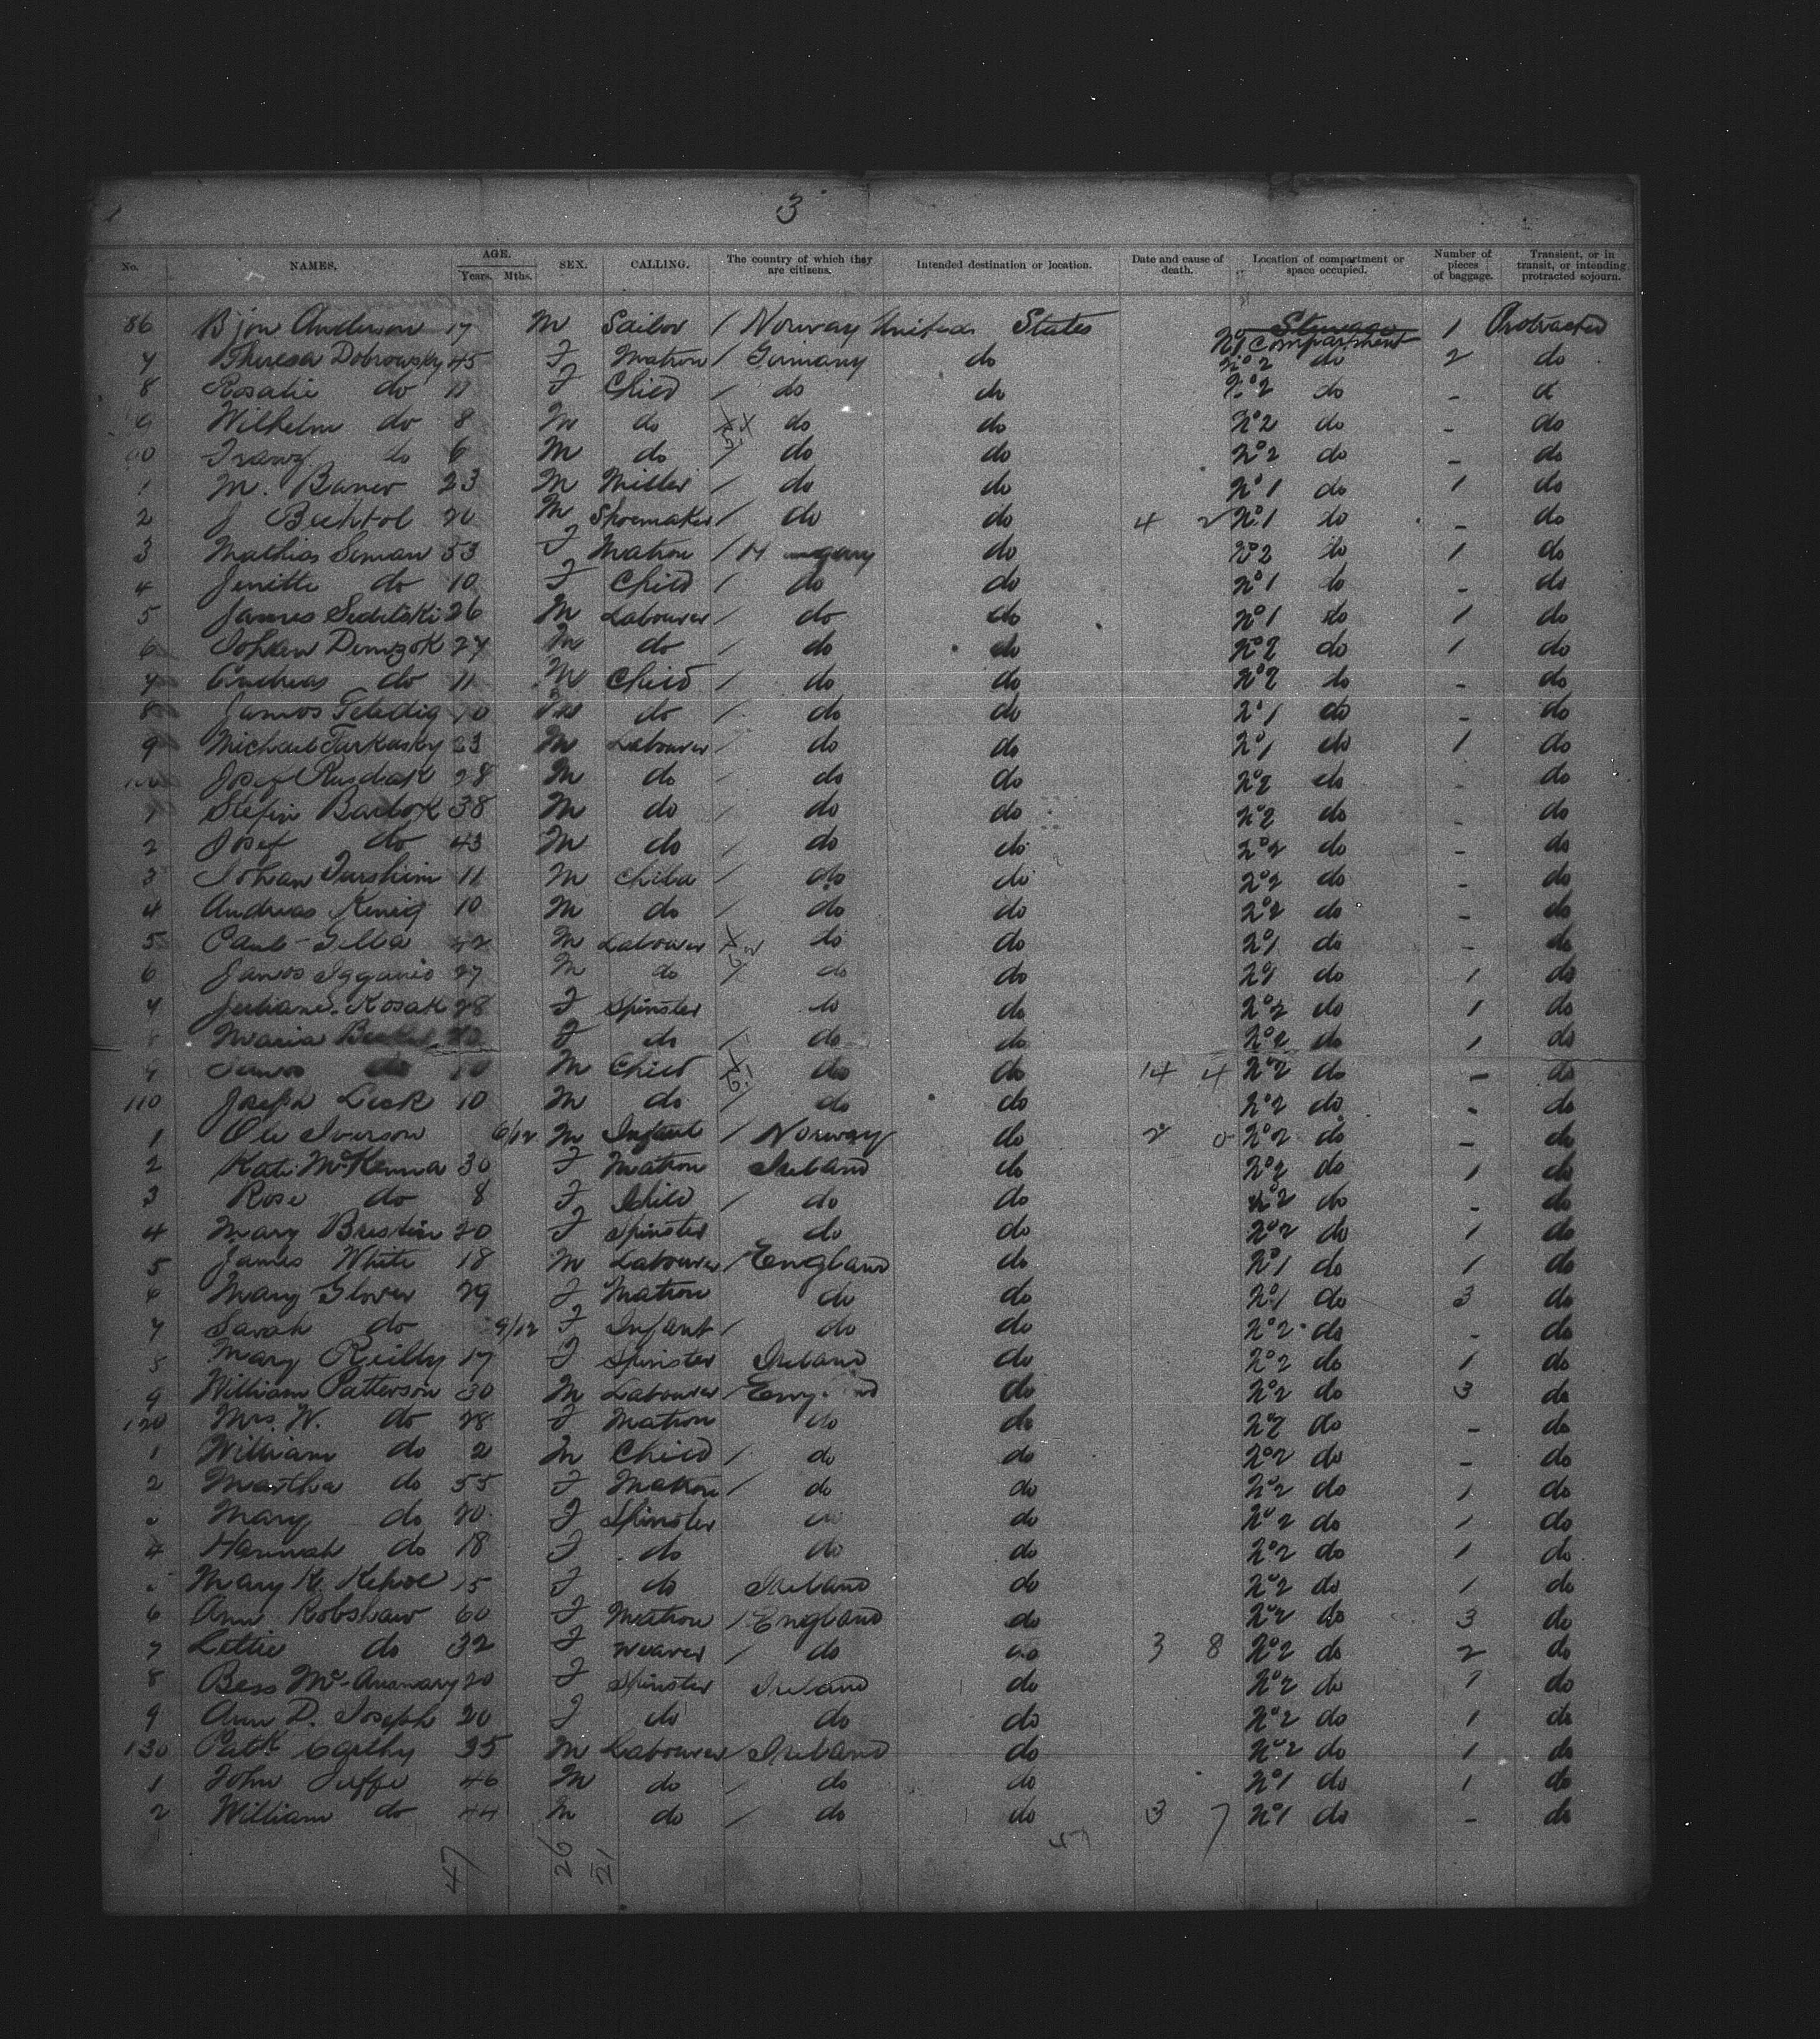 3
No. NAMES. AGE. Years. Mths. SEX. CALLING. The country of which they are citizens. Intended destination or location. Date and cause of death. Location of compartment or space occupied. Number of pieces of baggage. Transient, or in transit, or intending protracted sojourn.
86 Bjon Anderson 17 M Sailor / Norway United States Steerage No 1 Compartment 1 Protracted
7 Theresa Dobrowsky 45 F Matron / Germany do No 2 do 2 do
8 Rosalie do 11 F Child / do do No 2 do - do
9 Wilhelm do 8 M do do do No 2 do - do
90 Franz do 6 M do / do do No 2 do - do
1 M. Baner 23 M Miller / do do No 1 do 1 do
2 J Bechtol 26 M Shoemaker / do do 4 2 No 1 do - do
3 Mathias Seman 53 F Matron / Hungary do No 2 do 1 do
4 Jenitte do 10 F Child / do do No 1 do - do
5 James Sedilski 26 M Labourer / do do No 1 do 1 do
6 Johan Demzok 27 M do / do do No 2 do 1 do
7 Andreas do 11 M Child / do do No 2 do - do
8 Janos 10 M do / do do No 1 do - do
9 Michael Turkasky 23 M Labourer / do do No 1 do 1 do
100 Josef Rusdiak 28 M do / do do No 2 do - do
1 Stefin Badok 38 M do / do do No 2 do - do
2 Josef do 43 M do / do do No 2 do - do
3 Johan Turshim 11 M Child / do do No 2 do - do
4 Andreas Kenig 10 M do / do do No 2 do - do
5 Paul 42 M Labourer do do No 1 do - do
6 Janos 27 M do / do do No 1 do 1 do
7 Juliane Kosak 28 F Spinster do do No 2 do 1 do
8 Maria F do / do do No 2 do 1 do
9 Janos do 10 M Child do do 14 4 No 2 do - do
110 Joseph Lesk 10 M do / do do No 2 do - do
1 Ole Iverson 6/12 M Infant / Norway do 2 0 No 2 do - do
2 Kate McKenna 30 F Matron Ireland do No 2 do 1 do
3 Rose do 8 F Child / do do No 2 do - do
4 Mary Breslin 20 F Spinster do do No 2 do 1 do
5 James White 18 M Labourer / England do No 1 do 1 do
6 Mary Glover 29 F Matron do do No 1 do 3 do
7 Sarah do 9/12 F Infant / do do No 2 do - do
8 Mary Reilly 17 F Spinster Ireland do No 2 do 1 do
9 William Patterson 30 M Labourer / England do No 2 do 3 do
120 Mrs. W. do 28 F Matron do do No 2 do - do
1 William do 2 M Child / do do No 2 do - do
2 Martha do 55 F Matron / do do No 2 do 1 do
3 Mary do 20 F Spinster do do No 2 do 1 do
4 Hannah do 18 F do do do No 2 do 1 do
5 Mary K. Kehoe 15 F do Ireland do No 2 do 1 do
6 Ann Robshaw 60 F Matron / England do No 2 do 3 do
7 Lettie do 32 F Weaver / do do 3 8 No 2 do 2 do
8 Bess 20 F Spinster Ireland do No 2 do 1 do
9 Ann D. Joseph 20 F do do do No 2 do 1 do
130 Patk 35 M Labourer / Ireland do No 2 do 1 do
1 John Juffe 46 M do / do do No 1 do 1 do
2 William do 44 M do / do do 3 7 No 1 do - do
47 26 21 47